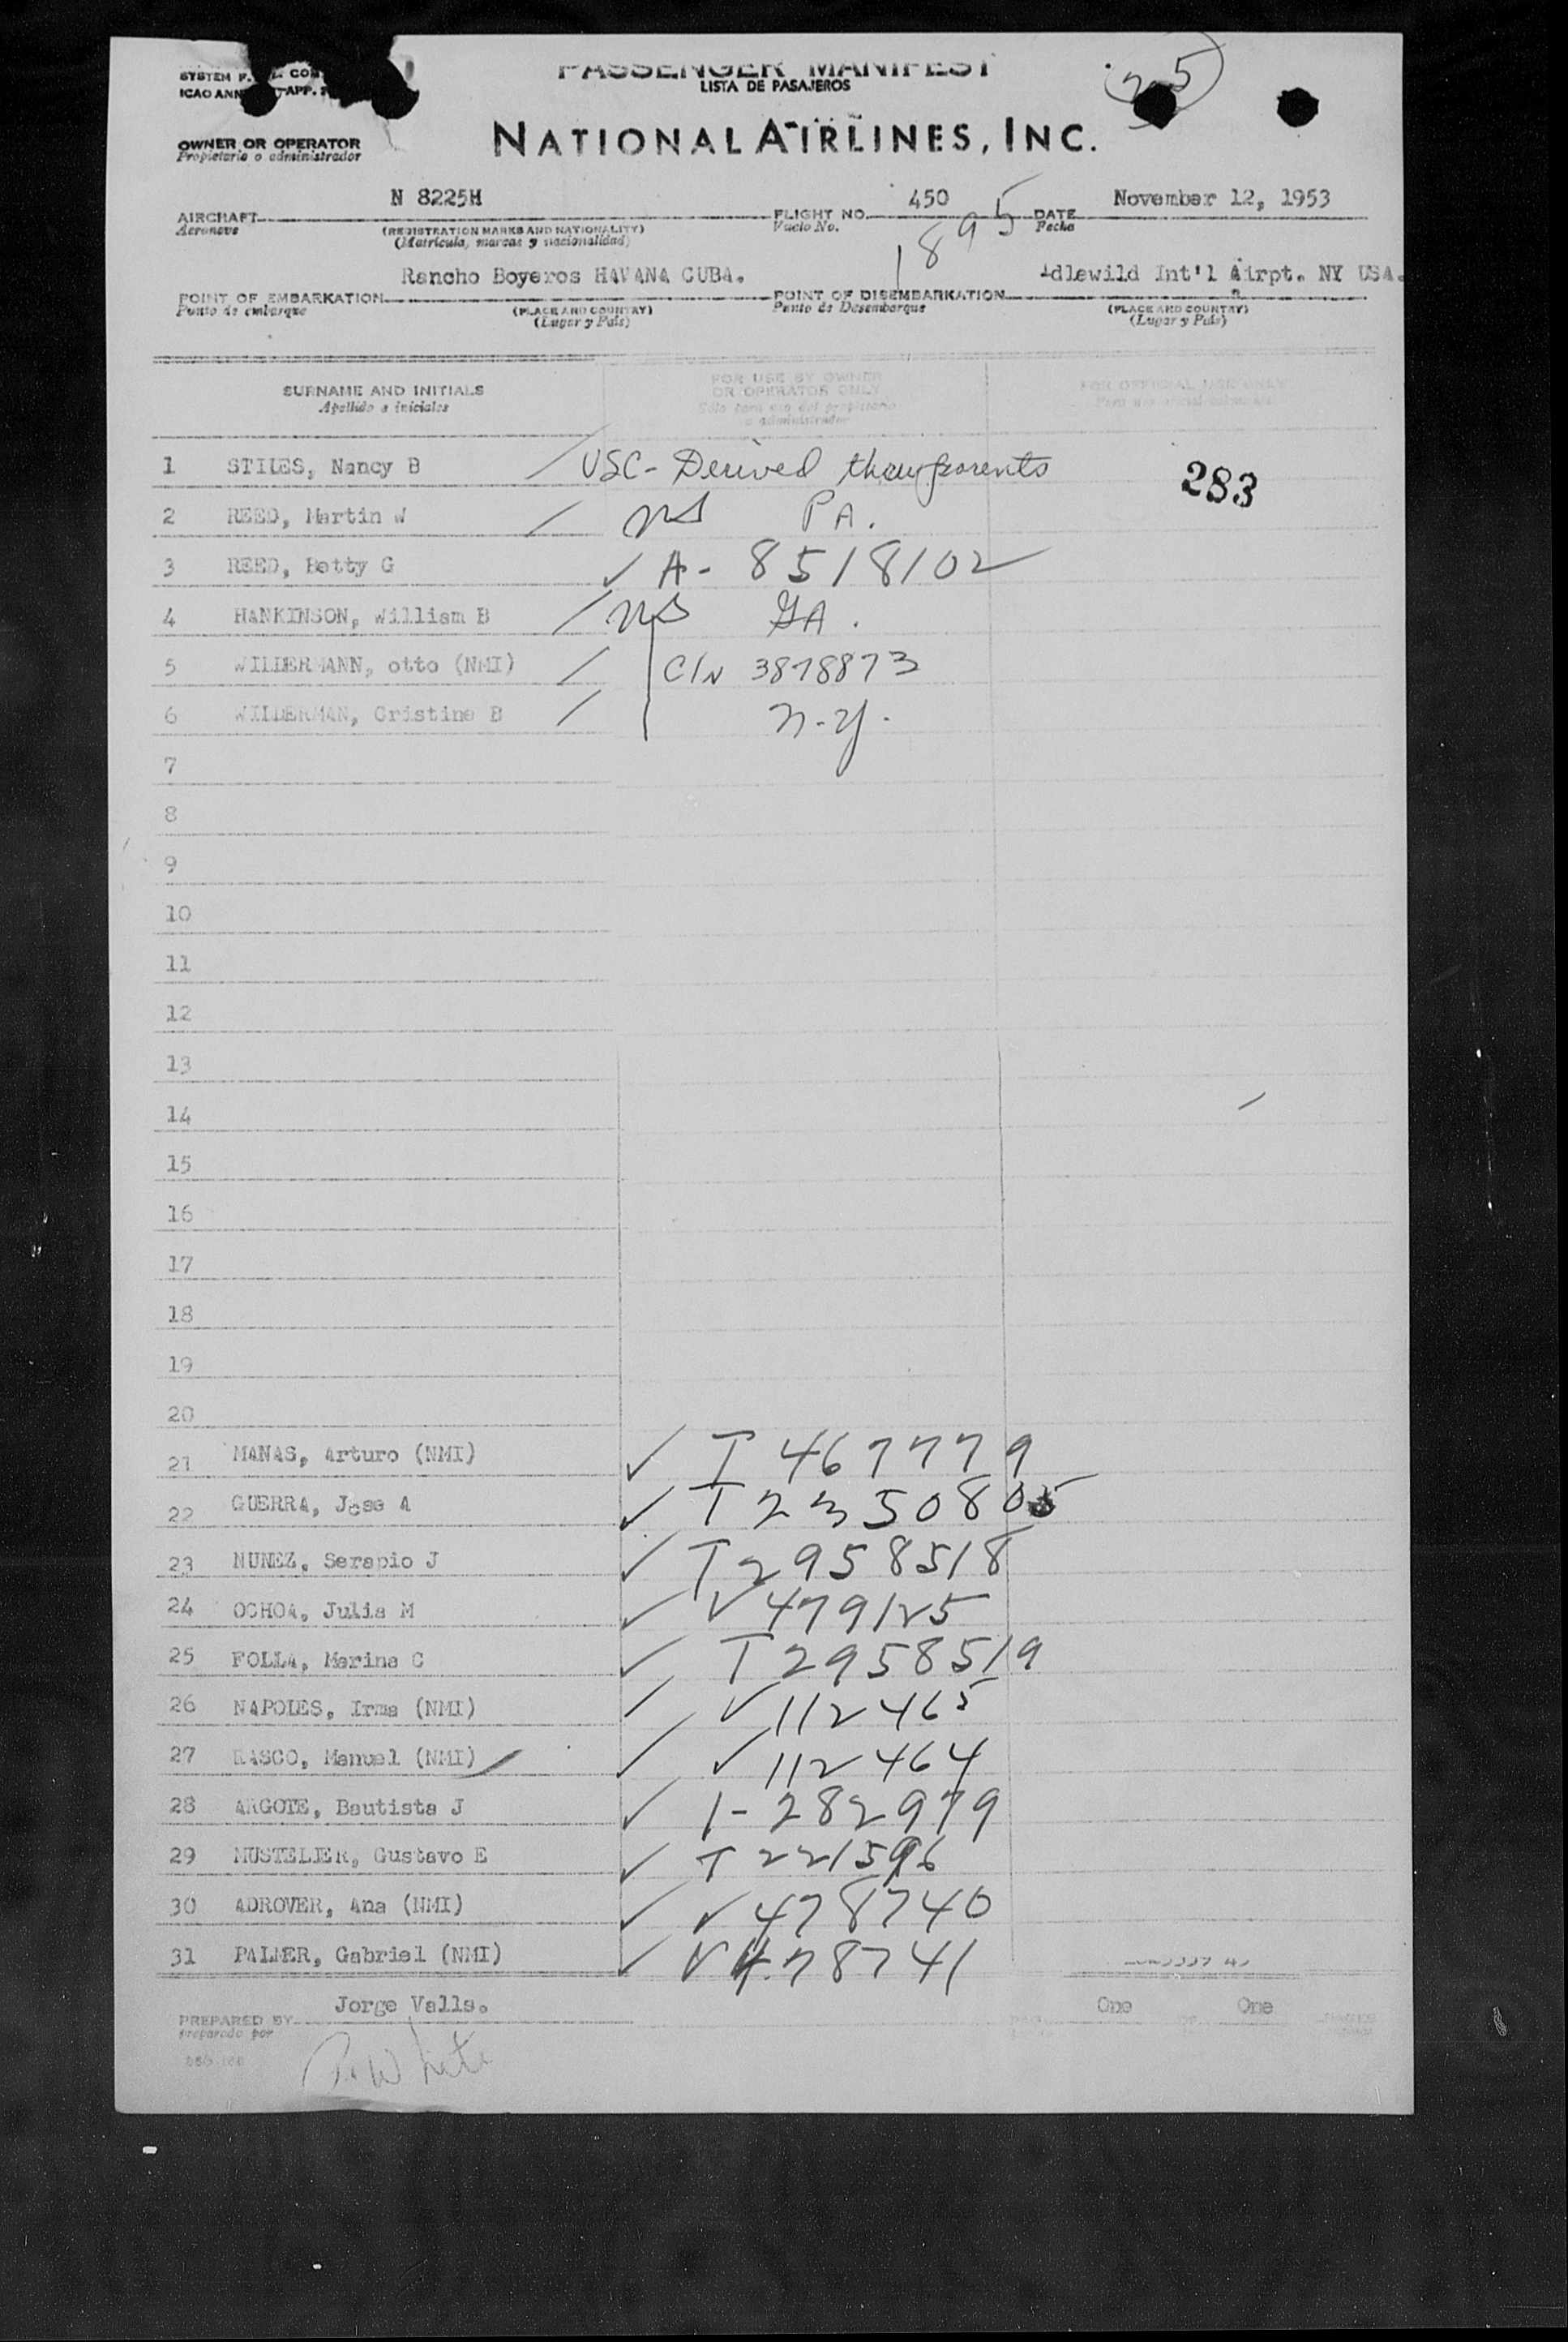 SYSTEM F.
ICAO ANN APP.
PASSENGER MANIFEST
LISTA DE PASAJEROS
25
OWNER OR OPERATOR
Propietario o administrador
NATIONAL AIRLINES, INC.
AIRCRAFT N 8225H FLIGHT NO. 450 DATE November 12, 1953
Aeronave (REGISTRATION MARKS AND NATIONALITY) Vuelo No. Fecha
(Matricula, marcas y nacionalidad)
1895
POINT OF EMBARKATION Rancho Boyeros HAVANA CUBA. POINT OF DISEMBARKATION Idlewild Int'l Airpt. NY USA.
Punto de embarque (PLACE AND COUNTRY) Punto de Desembarque (PLACE AND COUNTRY)
(Lugar y País) (Lugar y País)
SURNAME AND INITIALS FOR USE BY OWNER FOR OFFICIAL USE ONLY
OR OPERATOR ONLY
Apellido e iniciales Sólo para uso del propietario
o administrador
1 STILES, Nancy B USC - Derived thru parents 283
2 REED, Martin W PA.
3 REED, Betty G ✓ A- 8518102
4 HANKINSON, William B GA.
5 WILDERMANN, otto (NMI) C/N 3878873
6 WILDERMAN, Cristine B N-Y.
7
8
9
10
11
12
13
14
15
16
17
18
19
20
21 MANAS, Arturo (NMI) ✓ T 467779
22 GUERRA, Jose A ✓ T 2350805
23 NUNEZ, Serapio J ✓ T 2958518
24 OCHOA, Julia M ✓ V 479125
25 FOLLA, Marina C ✓ T 2958519
26 NAPOLES, Irma (NMI) ✓ V 112465
27 RASCO, Manuel (NMI) ✓ V 112464
28 ARGOTE, Bautista J ✓ 1-282979
29 MUSTELIER, Gustavo E ✓ T 221596
30 ADROVER, Ana (NMI) ✓ V 478740
31 PALMER, Gabriel (NMI) ✓ V 478741
PREPARED BY Jorge Valls. One One
preparado por
P. White